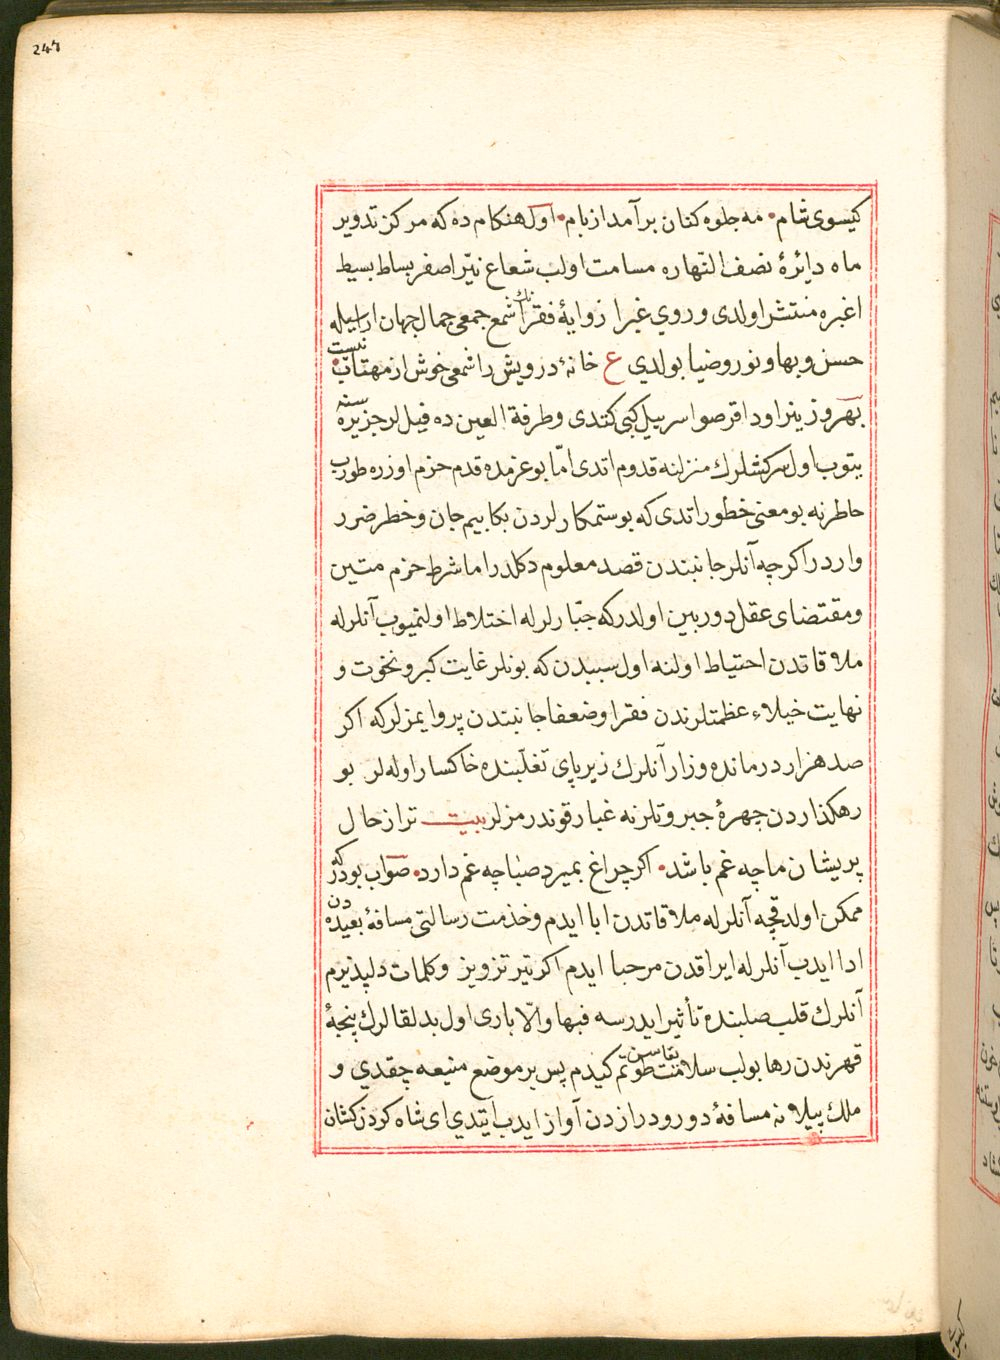 247
کیسوی شام • مه جلوه کنان برآمد از بام • اول هنکام ده که مرکز تدویر
ماه دایرۀ نصف النهاره مسامت اولب شعاع نیّر اصفر بساط بسیط
اغبره منتشر اولدی و روی غبرا زوایۀ فقرانك شمع جمعی جمال جهان اراسیله
حسن و بها و نور و ضیا بولدی ع خانۀ درویش را شمعی خوش از مهتاب نیست
بهروز ینراودا قرصو اسربیل کبی کتدی و طرفة العین ده فیللر جزیره سنه
یتوب اول سرکشلرك منزلنه قدوم اتدی امّا بو عزمده قدم حزم اوزره طورب
خاطرنه بو معنی خطور اتدی که بو ستمکارلردن بکا بیم جان و خطر ضرر
واردر اکرچه آنلر جانبندن قصد معلوم دکلدر اما شرط حزم متین
و مقتضای عقل دوربین اولدرکه جبّارلرله اختلاط اولنمیوب آنلرله
ملاقاتدن احتیاط اولنه اول سببدن که بونلر غایت کبر و نخوت و
نهایت خیلاء عظمتلرندن فقرا و ضعفا جانبندن پروا یمزلر که اکر
صد هزار درمانده و زار آنلرك زیر پای تغلّبنده خاکسار اوله لر بو
رهکذاردن چهرۀ جبروتلرنه غبار قوندرمزلر بیت ترا ز حال
پریشان ما چه غم باشد • اکر چراغ بمیرد صبا چه غم دارد • صواب بودرکه
ممکن اولدقچه آنلرله ملاقاتدن ابا ایدم و خذمت رسالتی مسافۀ بعیده دن
ادا ایدب آنلرله ایراقدن مرحبا ایدم اکر تیر تزویز و کلمات دلپذیرم
آنلرك قلب صلبنده تأثیر ایدرسه فبها و الّا باری اول بدلقالرك پنجۀ
قهرندن رها بولب سلامت یقاسن طوتم کیدم پس بر موضع منیعه چقدی و
ملك پیلانه مسافۀ دور و درازدن آواز ایدب ایتدی ای شاه کردنکشان